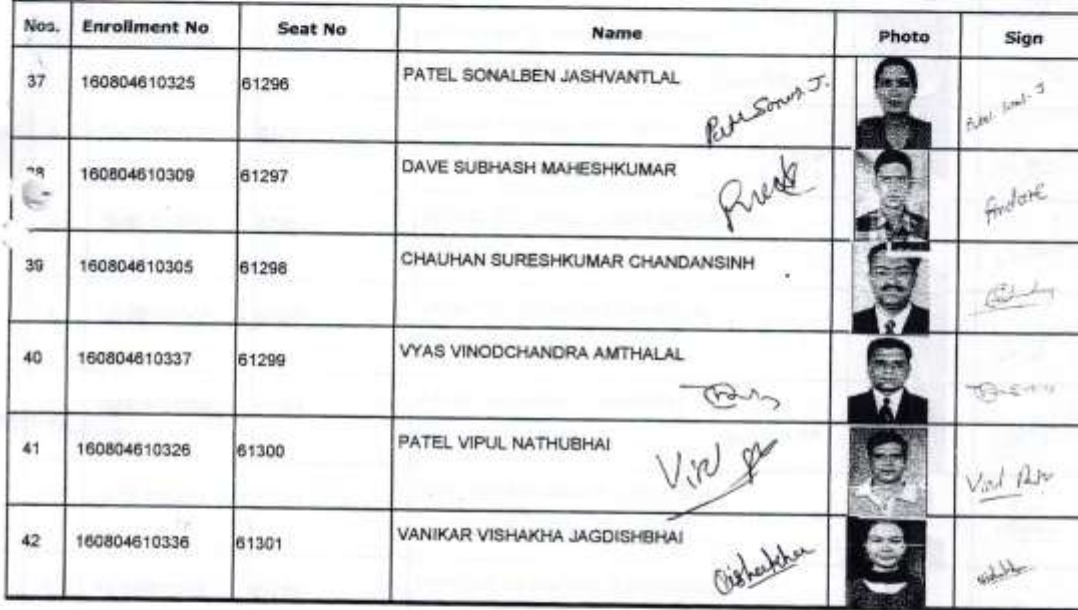 Nos. Enrollment No Seat No Name Photo Sign
37 160804610325 61296 PATEL SONALBEN JASHVANTLAL
160804610309 61297 DAVE SUBHASH MAHESHKUMAR
39 160804610305 61298 CHAUHAN SURESHKUMAR CHANDANSINH
40 160804610337 61299 VYAS VINODCHANDRA AMTHALAL
41 160804610326 61300 PATEL VIPUL NATHUBHAI
42 160804610336 61301 VANIKAR VISHAKHA JAGDISHBHAI